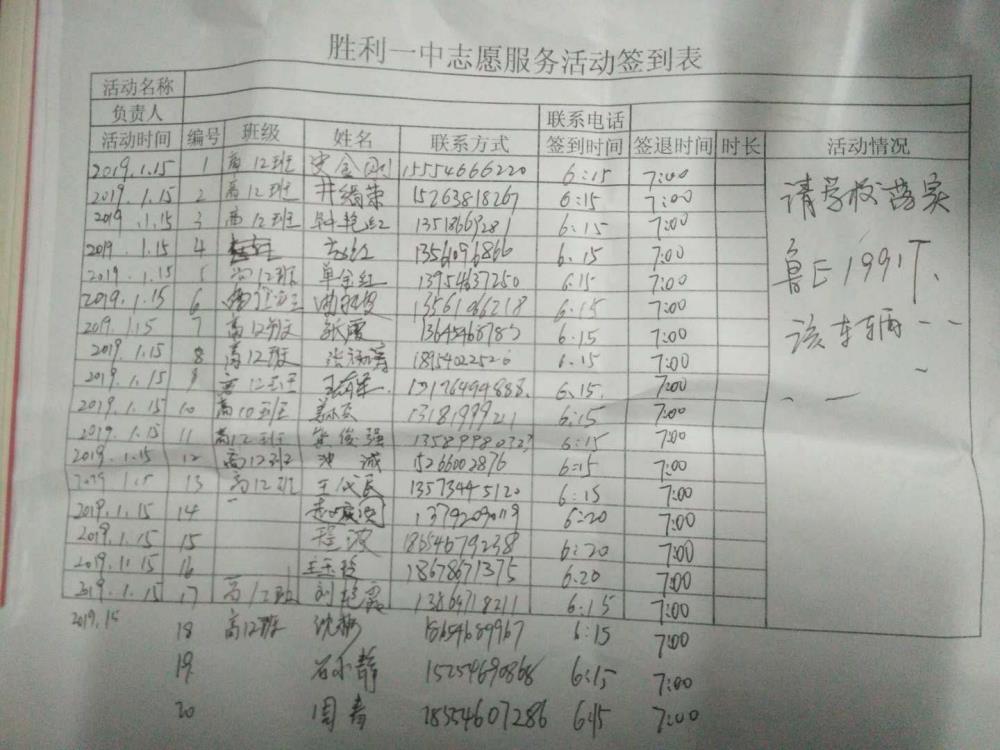 胜利一中志愿服务活动签到表
活动名称
负责人 联系电话
活动时间 编号 班级 姓名 联系方式 签到时间 签退时间 时长 活动情况
2019.1.15 1 高12班 15554666220 6:15 7:00
2019.1.15 2 高12班 井绪荣 15263818267 6:15 7:00
2019.1.15 3 高12班 钟艳红 6:15 7:00
2019.1.15 4 13561096866 6:15 7:00
2019.1.15 5 高12班 单金红 13954637250 6:15 7:00
2019.1.15 6 13561066218 6:15 7:00
2019.1.15 7 高12班 张霞 6:15 7:00
2019.1.15 8 高12班 18954022526 6:15 7:00
2019.1.15 9 高12班 6:15. 7:00
2019.1.15 10 高10班 13181999211 6:15 7:00
2019.1.15 11 高12班 俊强 6:15 7:00
2019.1.15 12 高12班 诚 15266002876 6:15 7:00
2019.1.15 13 高12班 王代民 13573445120 6:15 7:00
2019.1.15 14 13792090119 6:20 7:00
2019.1.15 15 程波 18654679238 6:20 7:00
2019.11.15 16 王玉玲 18678671375 6:20 7:00
2019.1.15 17 高12班 刘艳霞 13864718211 6:15 7:00
2019.15 18 高12班 18654689967 6:15 7:00
19 石小静 15254690868 6:15 7:00
20 周青 18554607286 6:15 7:00
请学校落实
鲁E1991T、
该车辆